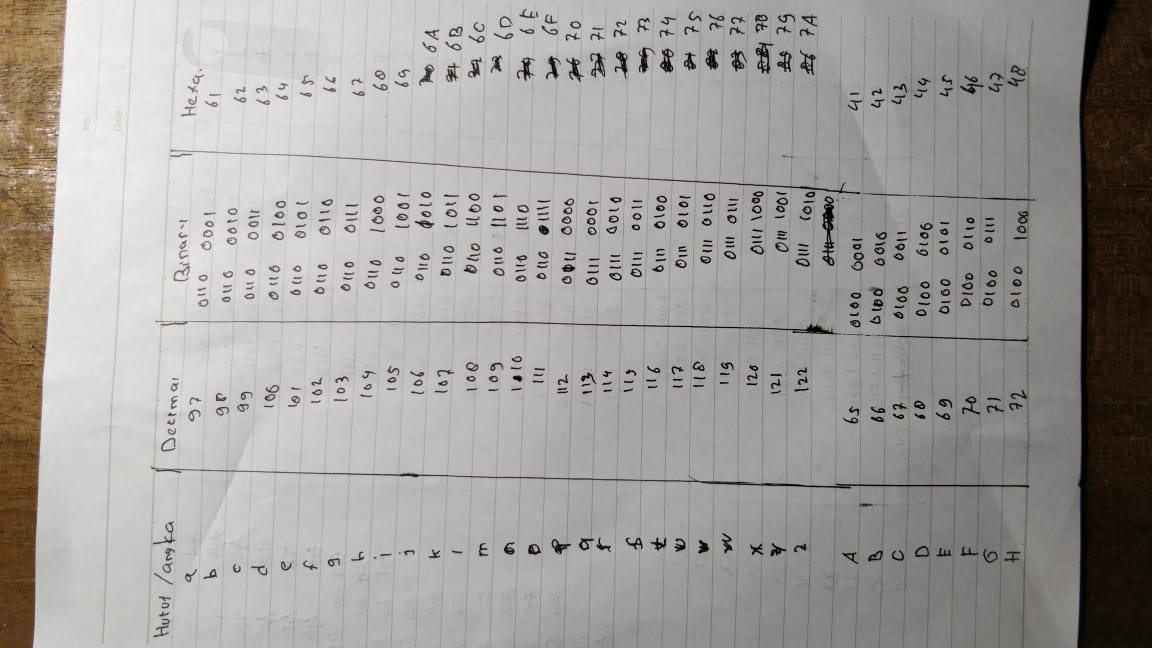 No.
Date
Huruf / angka Decimal Binary Hexa.
a 97 0110 0001 61
b 98 0110 0010 62
c 99 0110 0011 63
d 100 0110 0100 64
e 101 0110 0101 65
f 102 0110 0110 66
g 103 0110 0111 67
h 104 0110 1000 68
i 105 0110 1001 69
j 106 0110 1010 6A
k 107 0110 1011 6B
l 108 0110 1100 6C
m 109 0110 1101 6D
n 110 0110 1110 6E
o 111 0110 1111 6F
p 112 0011 0000 70
q 113 0111 0001 71
r 114 0111 0010 72
s 115 0111 0011 73
t 116 0111 0100 74
u 117 0111 0101 75
v 118 0111 0110 76
w 119 0111 0111 77
x 120 0111 1000 78
y 121 0111 1001 79
z 122 0111 1010 7A
A 65 0100 0001 41
B 66 0100 0010 42
C 67 0100 0011 43
D 68 0100 0100 44
E 69 0100 0101 45
F 70 0100 0110 46
G 71 0100 0111 47
H 72 0100 1000 48